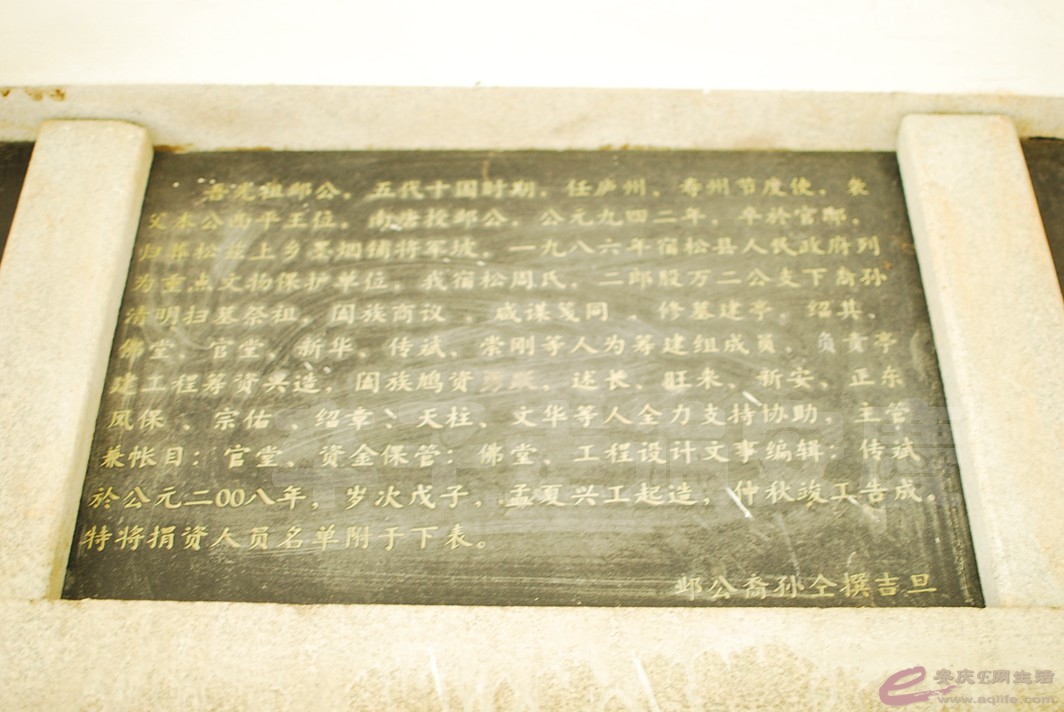 吾先祖邺公，五代十国时期，任庐州，寿州节度使，袭
父本公西平王位，南唐授邺公，公元九四二年，卒於官邸，
归葬松兹上乡墨烟铺将军坡，一九八六年宿松县人民政府列
为重点文物保护单位，我宿松周氏，二郎股万二公支下裔孙
清明扫墓祭祖，阖族商议、咸谋笺同、修墓建亭，绍其、
佛堂、官堂、新华、传斌、崇刚等人为筹建组成员，负责亭
建工程筹资兴造，阖族鸠资踊跃，述长、旺来、新安、正东
凤保、宗佑、绍章、天柱、文华等人全力支持协助，主管
兼帐目：官堂、资金保管：佛堂、工程设计文事编辑：传斌
於公元二00八年，岁次戊子，孟夏兴工起造，仲秋竣工告成。
特将捐资人员名单附于下表。
邺公裔孙仝撰吉旦
安庆E网生活
www.aqlife.com